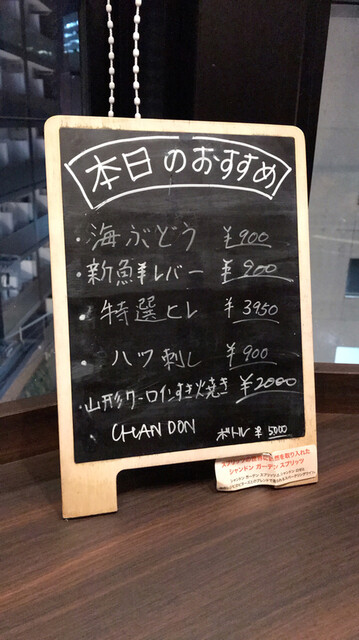 本日のおすすめ
・海ぶどう ¥900
・新鮮レバー ¥900
・特選ヒレ ¥3950
・ハツ刺し ¥900
・山形サーロインすき火焼き ¥2000
CHANDON ボトル ¥5000
シャンドン ガーデン スプリッツ